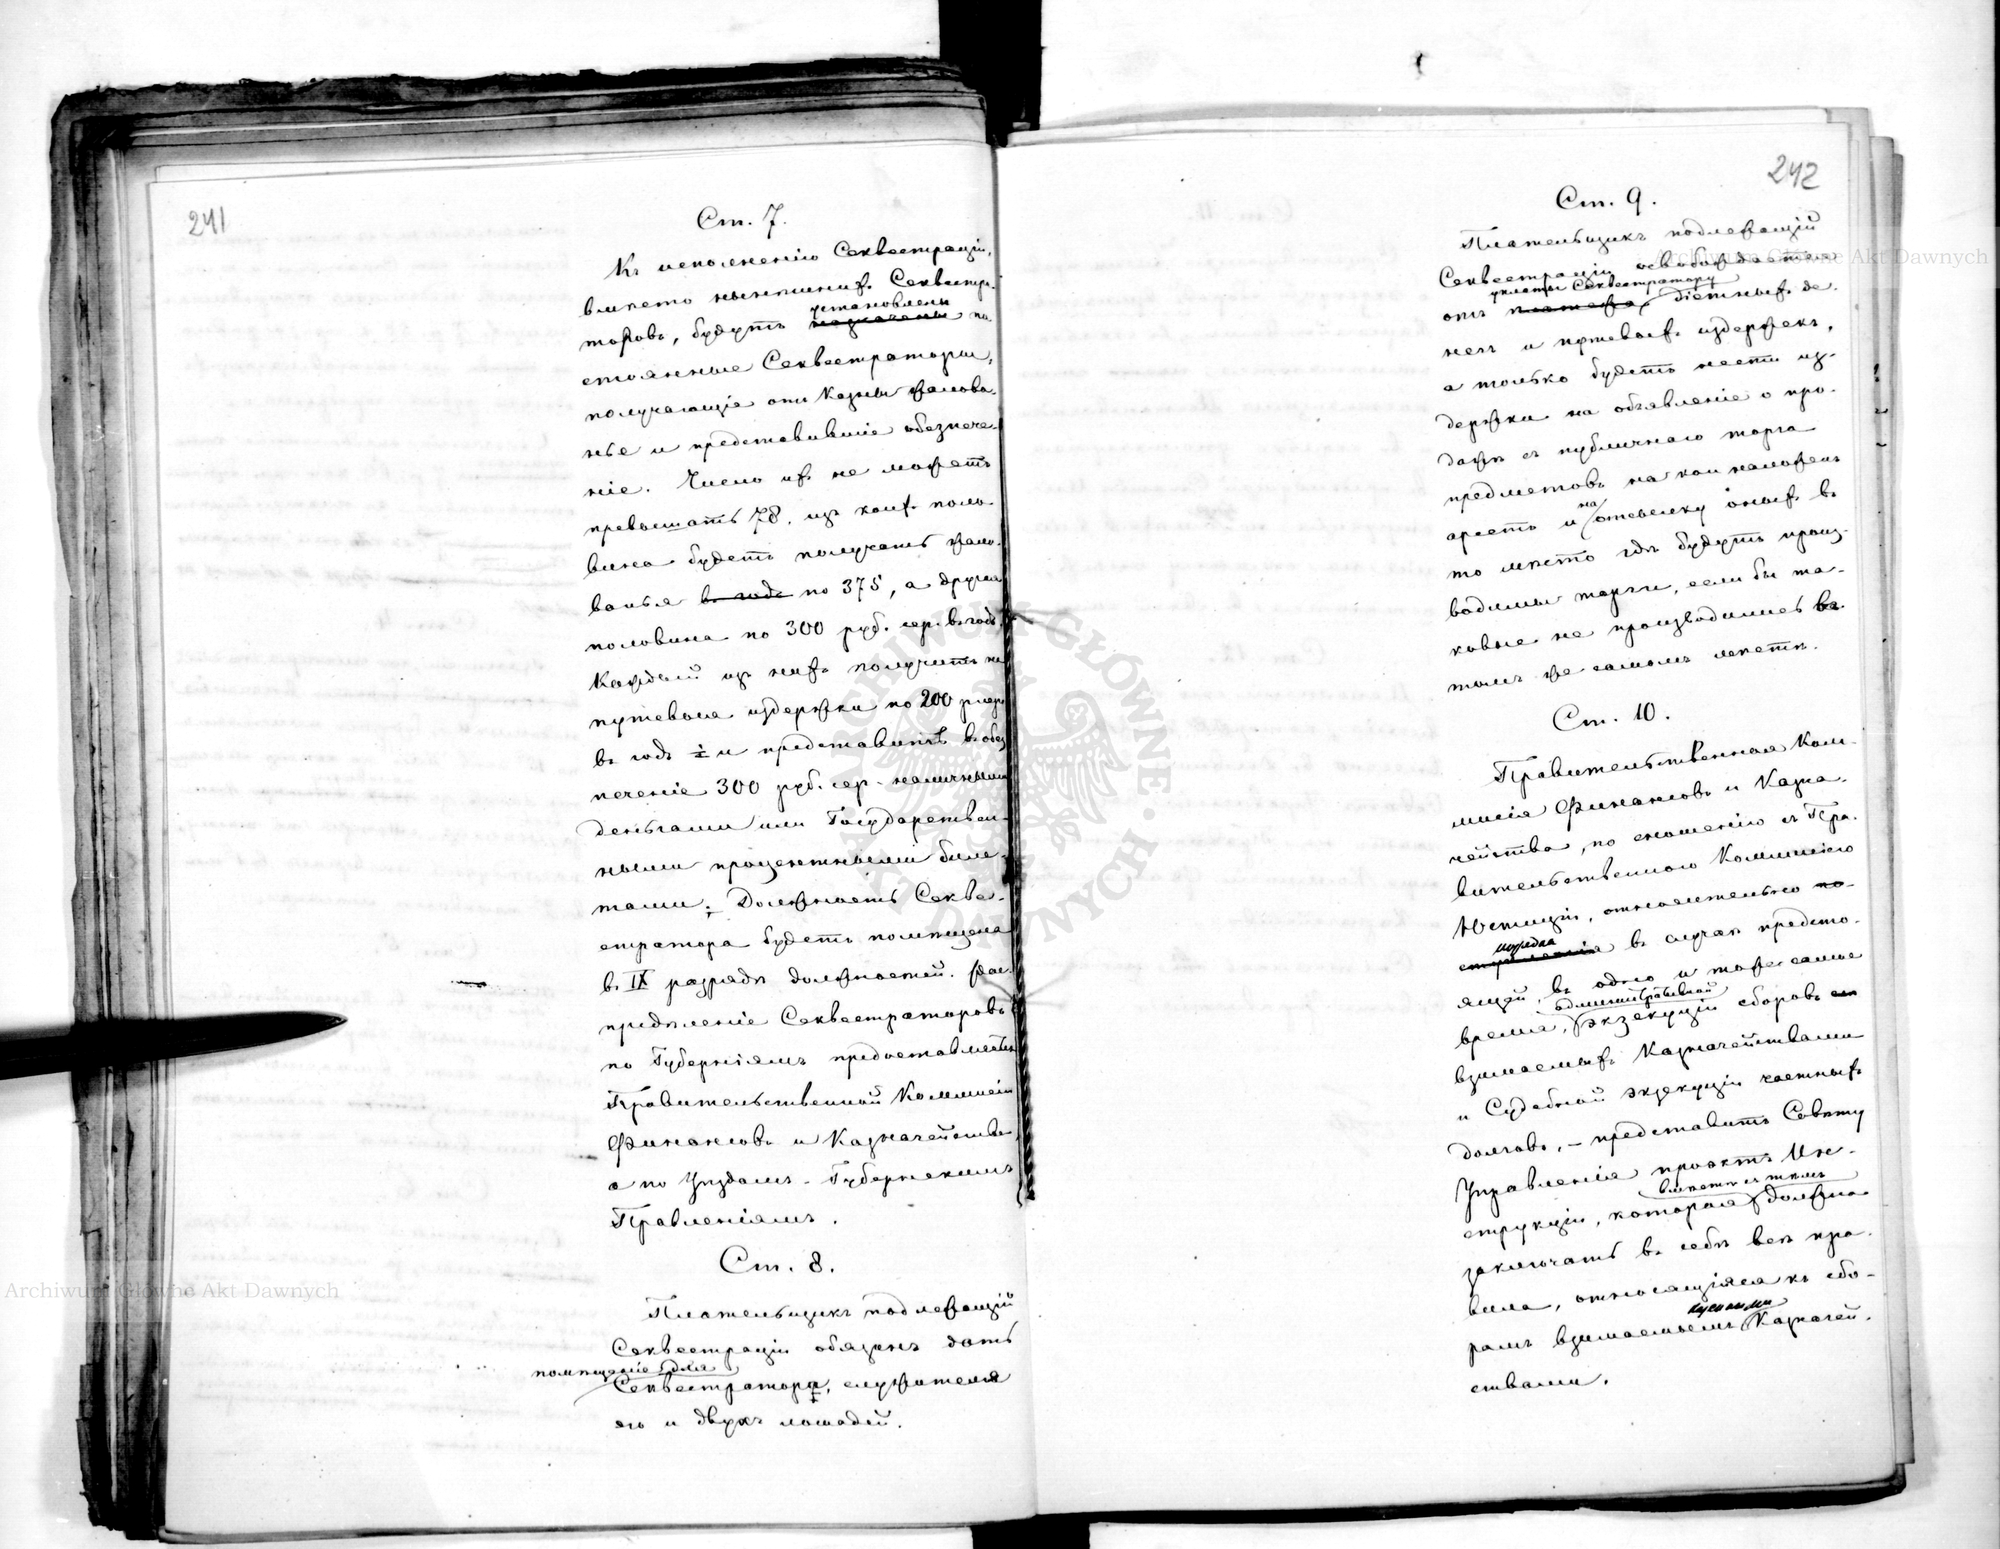 241
Ст. 7.
Къ исполненію Секвестраціи,
вмѣсто нынѣшнихъ Секвестра-
установлены
торовъ, будутъ назначены по-
стоянные Секвестраторы,
получающіе отъ Казны жалова-
нье и представившіе обезпече-
ніе. Число ихъ не можетъ
превышать 78, изъ коихъ поло-
вина будетъ получать жало-
ванья въ годъ по 375, а другая
половина по 300 руб. сер. въ годъ.
Каждый изъ нихъ получитъ на
путевыя издержки по 200 р. сер.
въ годъ и представитъ въ обез
печеніе 300 руб. сер. наличными
деньгами или Государствен-
ными процентными биле-
тами. Должность Секве-
стратора будетъ помѣщена
въ IX разрядѣ должностей. Рас-
предѣленіе Секвестраторовъ
по Губерніямъ предоставляется
Правительственной Коммисіи
Финансовъ и Казначейства,
а по Уѣздамъ - Губернскимъ
Правленіямъ.
Ст. 8.
Плательщикъ подлежащій
Секвестраціи обязанъ дать
помѣщеніе для
Секвестратора, служителя
его и двухъ лошадей.
242
Ст. 9.
Плательщикъ подлежащій
Секвестраціи освобождается
уплаты Секвестратору
отъ платежа діетныхъ де-
негъ и путевыхъ издержекъ,
а только будетъ нести из-
держки на объявленіе о про-
дажѣ съ публичнаго торга
предметовъ на кои наложенъ
на
арестъ и отсылку оныхъ въ
то мѣсто гдѣ будутъ произ-
водимы торги, если бы та-
ковые не производились въ
томъ же самомъ мѣстѣ.
Ст. 10.
Правительственная Ком-
мисія Финансовъ и Казна-
чейства, по сношенію съ Пра-
вительственною Коммисіею
Юстиціи, относительно по-
порядка
ступленія въ случаѣ предсто-
ящей, въ одно и тоже самое
административной
время, экзекуціи сборовъ
взимаемыхъ Казначействами
и Судебной экзекуціи частныхъ
долговъ, - представитъ Совѣту
Управленія проэктъ Ин-
вмѣстѣ съ тѣмъ
струкціи, которая должна
заключать въ себѣ всѣ пра-
вила, относящіяся къ сбо-
рамъ взимаемымъ Казначей-
ствами.
Archiwum Główne Akt Dawnych
Archiwum Główne Akt Dawnych
ARCHIWUM GŁÓWNE AKT DAWNYCH